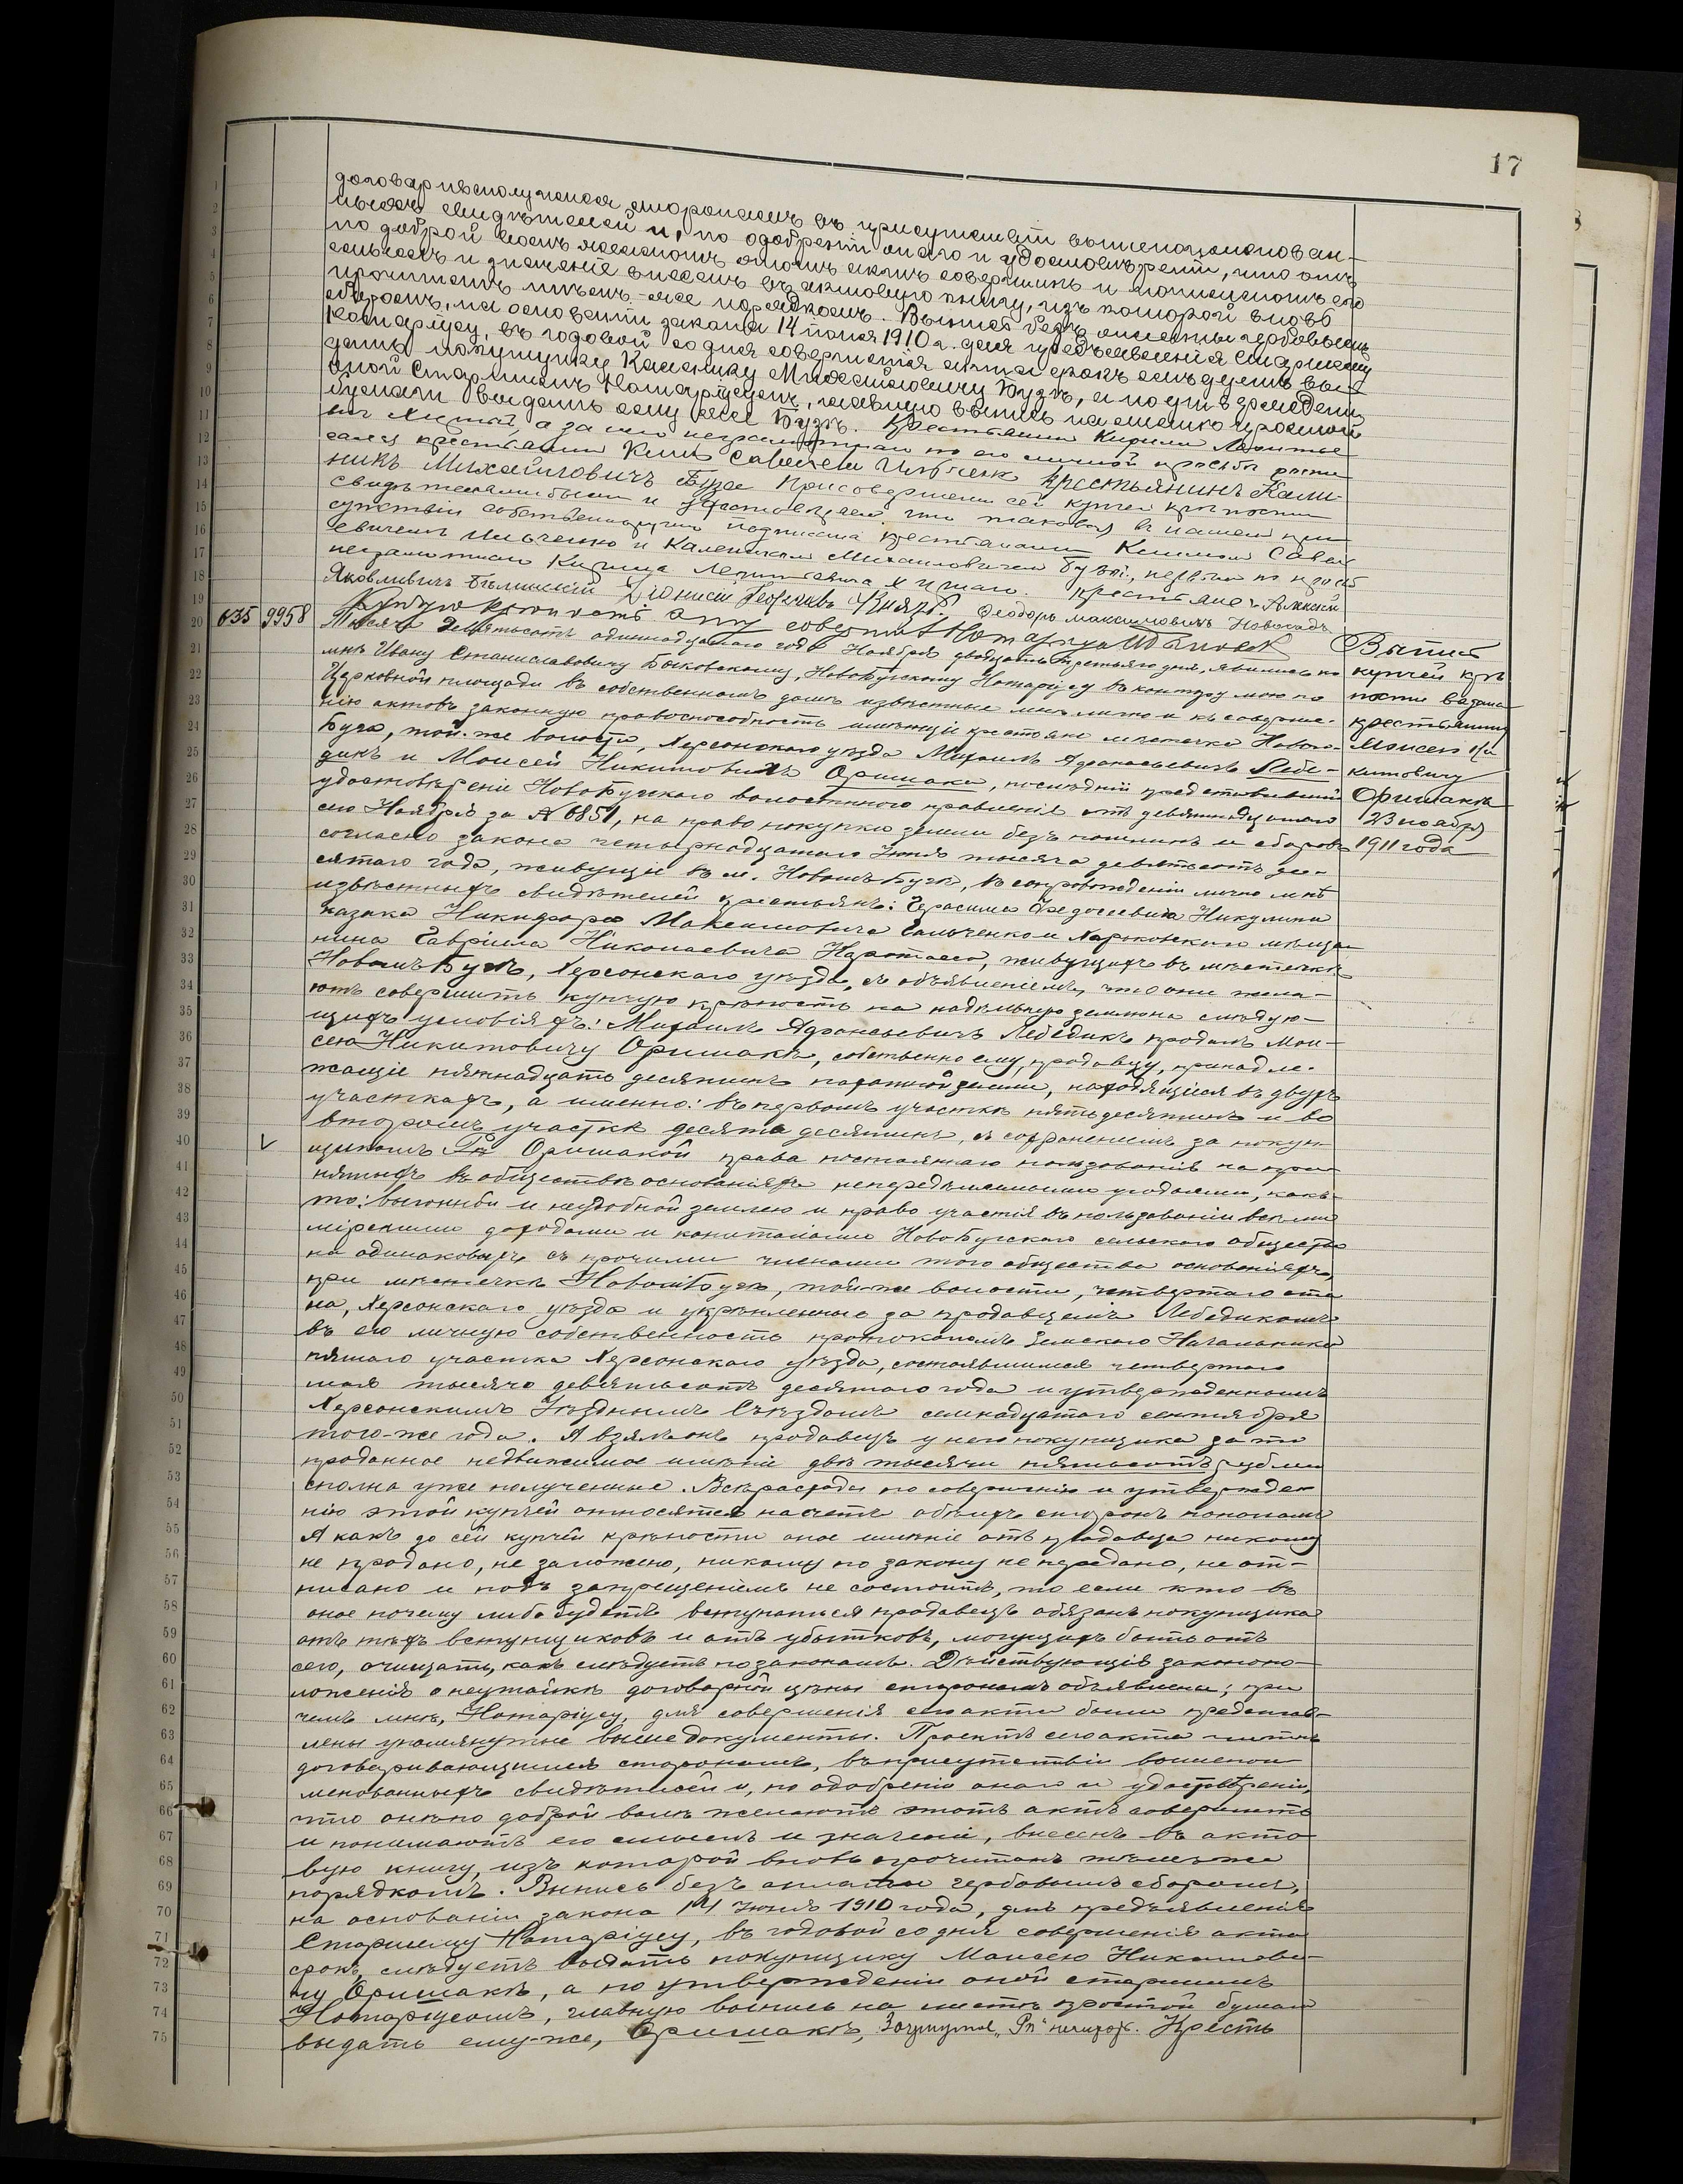 17
договаривающимся сторонамъ въ присутствіи вышепоименован-
ныхъ свидѣтелей и, по одобреніи онаго и удостовѣреніи, что они
по доброй волѣ желаютъ этотъ актъ совершить и понимаютъ его
смыслъ и значеніе внесенъ въ актовую книгу, изъ которой вновь
прочитанъ тѣмъ-же порядкомъ. Выпись безъ оплаты гербовымъ
сборомъ, на основаніи закона 14 іюня 1910 г. для предъявленія Старшему
Нотаріусу, въ годовой со дня совершенія акта срокъ слѣдуетъ вы-
дать покупщику Каленику Михайловичу Бузѣ, а по утвержденіи
оной Старшимъ Нотаріусомъ, главную выпись на листѣ простой
бумаги выдать ему же Бузѣ. Крестьянинъ Кирилъ Леонтье
а за него неграмотнаго по его личной просьбѣ роспи
сался крестьянинъ Климъ Савельев Ильченко Крестьянинъ Кали
никъ Михайловичъ Буза При совершеніи сей купчей крѣпости
свидѣтелями были и удостовѣряемъ что таковая въ нашемъ при
сутствіи собственноручно подписана крестьянами Климомъ Савель
евичемъ Ильченко и Каленикомъ Михайловичемъ Бузой, первымъ по просьбѣ
неграмотнаго Кирилла Леонтьевича Крестьяне: Алексѣй
Яковлевичъ Бѣлинскій Діонисій Георгіевъ Феодоръ Максимовичъ Новосадъ
Купчую крѣпость эту совершилъ Нотаріусъ
635 9958 Тысяча девятьсотъ одиннадцатаго года Ноября двадцать третьяго дня, явились ко
мнѣ Ивану Станиславовичу Быковскому, НовоБугскому Нотаріусу въ контору мою по
Церковной площади въ собственномъ домѣ извѣстные мнѣ лично и къ соверше-
нію актовъ законную правоспособность имѣющіе крестьяне мѣстечка Новаго-
Буга, той-же волости, Херсонскаго уѣзда Михаилъ Афанасьевичъ Лебе-
дикъ и Моисей Никитовичъ Оришака, послѣдній представившій
удостовѣреніе НовоБугскаго волостнаго правленія отъ девятнадцатаго
сего Ноября за № 6851, на право покупки земли безъ пошлинъ и сборовъ
согласно закона четырнадцатаго Іюня тысяча девятьсотъ де-
сятаго года, живущіе въ м. НовомъБугѣ, въ сопровожденіи лично мнѣ
извѣстныхъ свидѣтелей крестьянъ: Герасима Федосеевича Никулина
казака Никифора Максимовича Сальченко и Харьковскаго мѣща-
нина Гавріила Николаевича живущихъ въ мѣстечкѣ
НовомъБугѣ, Херсонскаго уѣзда, съ объявленіемъ, что они жела-
ютъ совершить купчую крѣпость на надѣльную землю на слѣдую-
щихъ условіяхъ: Михаилъ Афанасьевичъ Лебедикъ продалъ Мои-
сею Никитовичу Оришакѣ, собственно ему, продавцу, принадле-
жащіе пятнадцать десятинъ пахатной земли, находящіяся въ двухъ
участкахъ, а именно: въ первомъ участкѣ пять десятинъ и во
второмъ участкѣ десять десятинъ, съ сохраненіемъ за покуп-
V щикомъ Рп Оришакой права постояннаго пользованія на при-
нятыхъ въ обществѣ основаніяхъ непередѣляемыми угодьями, какъ-
то: выгонной и неудобной землею и право участія въ пользованіи всѣми
мірскими доходами и капиталами НовоБугскаго сельскаго общества
на одинаковыхъ съ прочими членами того общества основаніяхъ,
при мѣстечкѣ НовомъБугѣ, той-же волости, четвертаго ста
на, Херсонскаго уѣзда и укрѣпленные за продавцемъ Лебедикомъ
въ его личную собственность протоколомъ Земскаго Начальника
пятаго участка Херсонскаго уѣзда, состоявшимся четвертаго
мая тысяча девятьсотъ десятаго года и утвержденнымъ
Херсонскимъ Уѣзднымъ Съѣздомъ семнадцатаго сентября
того-же года. А взялъ онъ продавецъ у него покупщика за то
проданное недвижимое имѣніе двѣ тысячи пятьсотъ рублей
сполна уже полученные. Всѣ расходы по совершенію и утвержде-
нію этой купчей относятся на счетъ обѣихъ сторонъ пополамъ
А какъ до сей купчей крѣпости оное имѣніе отъ продавца никому
не продано, не заложено, никому по закону не передано, не от-
писано и подъ запрещеніемъ не состоитъ, то если кто въ
оное почему либо будетъ вступаться продавецъ обязанъ покупщика
отъ тѣхъ вступщиковъ и отъ убытковъ, могущихъ быть отъ
сего, очищать, какъ слѣдуетъ по законамъ. Дѣйствующія законопо-
ложенія о неутайкѣ договорной цѣны сторонамъ объявлены; при
чемъ мнѣ, Нотаріусу, для совершенія сего акта были представ-
лены упомянутые выше документы. Проектъ сего акта читанъ
договаривающимся сторонамъ, въ присутствіи вышепои
менованныхъ свидѣтелей и, по одобреніи онаго и удостовѣреніи,
что они по доброй волѣ желаютъ этотъ актъ совершить
и понимаютъ его смыслъ и значеніе, внесенъ въ акто-
вую книгу, изъ которой вновь прочитанъ тѣмъ же
порядкомъ. Выпись безъ оплаты гербовымъ сборомъ,
на основаніи закона 14 Іюня 1910 года, для предъявленія
Старшему Нотаріусу, въ годовой со дня совершенія акта
срокъ, слѣдуетъ выдать покупщику Моисею Никитови-
чу Оришакѣ, а по утвержденіи оной старшимъ
Нотаріусомъ, главную выпись на листѣ простой бумаги
выдать ему-же, Оришакѣ, Зачеркнутое „Рп“ не читать. Кресть
Выпись
купчей крѣ
пости выдана
крестьянину
Моисею Ни
китовичу
Оришакѣ
23 ноября
1911 года